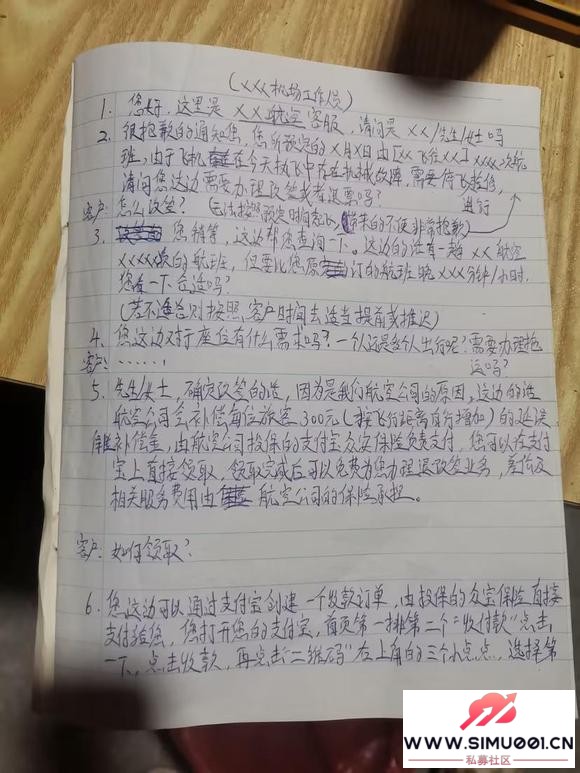 (xxx机场工作人员)
1. 您好,这里是xx航空客服,请问是xx/先生/女士吗
2. 很抱歉的通知您,您所预定的x月x日由[xx飞往xx]xxxx次航
班,由于飞机在今天执飞中存在机械故障,需要停飞检修,
请问您这边需要办理改签或者退票吗? 进行
客户: 怎么改签? (无法按照预定时间起飞,带来的不便非常抱歉)
3. 您稍等,这边帮您查询一下。这边的话有一趟xx航空
xxxx次的航班,但要比您原订的航班晚xxx分钟/小时.
您看一下合适吗?
(若不适合则按照客户时间去适当提前或推迟)
4. 您这边对于座位有什么需求吗?一个人还是多个人出行呢?需要办理托
运吗?
客户: ......
5. 先生/女士,确定改签的话,因为是我们航空公司的原因,这边的话
航空公司会补偿每位旅客300元(按飞行距离自行增加)的延误
保险补偿金,由航空公司投保的支付宝众安保险负责支付,您可以在支付
宝上直接领取,领取完成后可以免费为您办理退改签业务,差价及
相关服务费用由航空公司的保险承担。
客户: 如何领取?
6. 您这边可以通过支付宝创建一个收款订单,由投保的众宝保险直接
支付给您,您打开您的支付宝,首页第一排第二个"收付款"点击
一下,点击收款,再点击"二维码"右上角的三个小点点,选择第
WWW.SIMU001.CN
私募社区